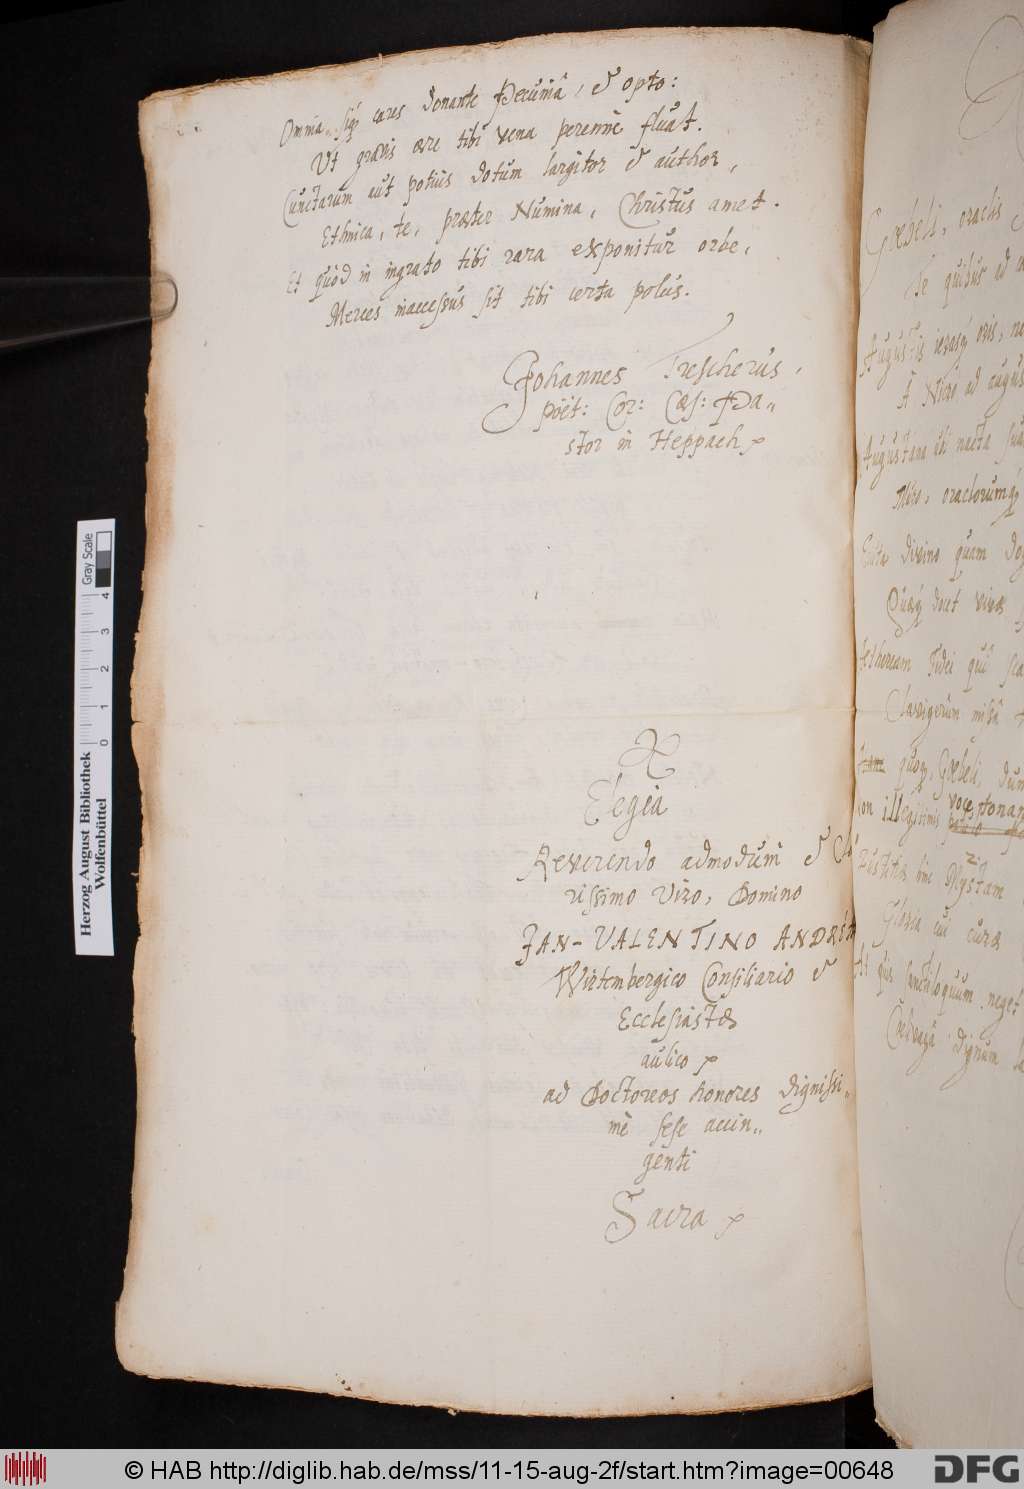 Omnia, siq; cares donante Pecuniâ, & opto:
Ut gravis ære tibi vena perenne fluat.
Cunctarum aut potiùs dotum largitor & author,
Ethnica, te, præter Numina, Christus amet.
Et quòd in ingrato tibi rara exponitur orbe,
Merces inaccessus sit tibi certa polus.
Johannes
Poët: Cor: Cæs: Pa„
stor in Heppach
Elegia
Reverendo admodum &
rissimo Viro, Domino
JAN-VALENTINO ANDREÆ
Wirtembergico Consiliario &
Ecclesiastæ
aulico
ad Doctoreos honores dignissi„
mè sese accin„
genti
Sacra
Gœbeli, oraclis
Te quibus ad
Augustis
À Nicro ad augus
Augustana ubi nacta
oraclorumq;
divino quam
Quæq; docet vivæ
Ætheream Fidei quâ
Clavigerûm missâ
quoq; Gœbeli, dum
illegitimis voce tonan
hinc Mystam
Gloria cui curæ
At quis sanctiloquum neget
dignum
Herzog August Bibliothek
Wolfenbüttel
0 1 2 3 4
Gray Scale
© HAB http://diglib.hab.de/mss/11-15-aug-2f/start.htm?image=00648
DFG